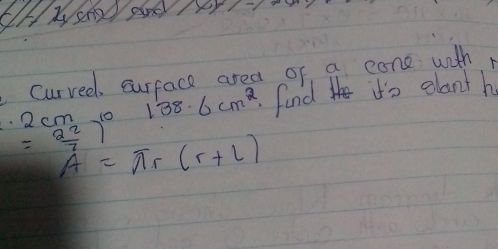 curved surface area of a cone with r
.2cm is 138.6cm². find the it's slant h
= 22/7)
A = πr(r+l)